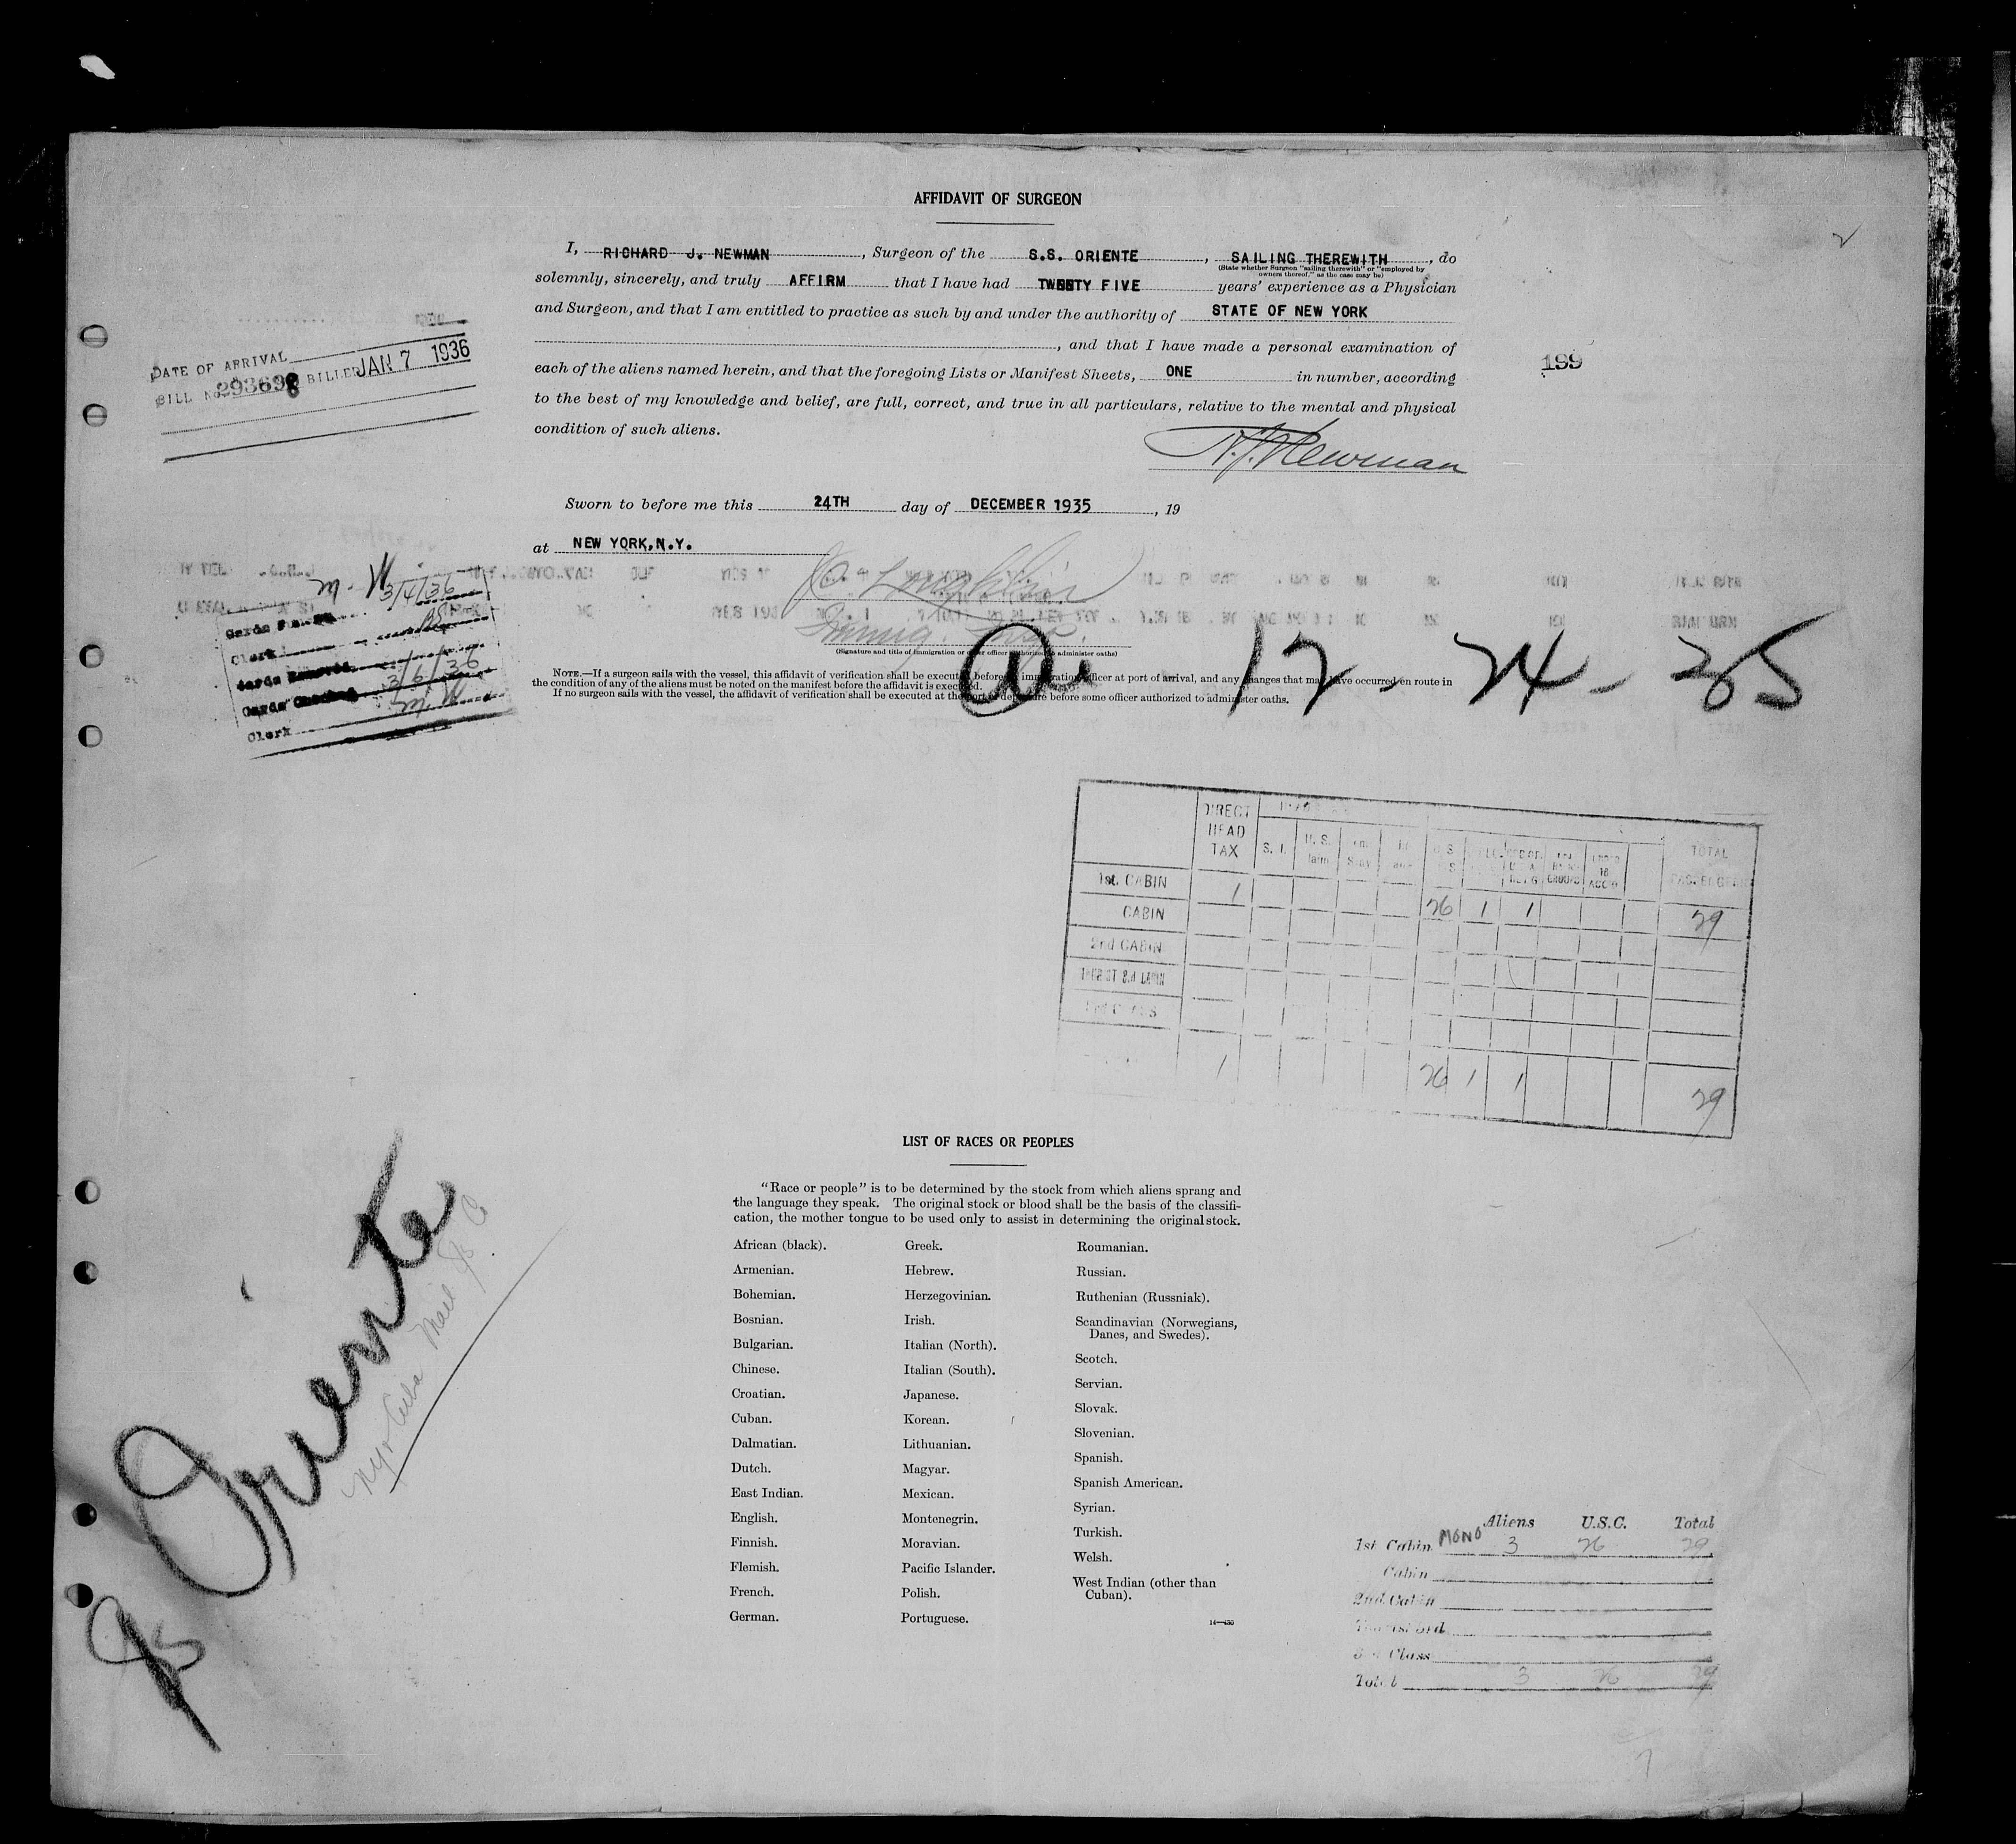 AFFIDAVIT OF SURGEON
I, RICHARD J. NEWMAN, Surgeon of the S.S. ORIENTE, SAILING THEREWITH, do
(State whether Surgeon "sailing therewith" or "employed by
owners thereof," as the case may be)
solemnly, sincerely, and truly AFFIRM that I have had TWENTY FIVE years' experience as a Physician
and Surgeon, and that I am entitled to practice as such by and under the authority of STATE OF NEW YORK
, and that I have made a personal examination of
each of the aliens named herein, and that the foregoing Lists or Manifest Sheets, ONE in number, according
to the best of my knowledge and belief, are full, correct, and true in all particulars, relative to the mental and physical
condition of such aliens.
R.J. Newman
199
DATE OF ARRIVAL
BILL No. 293698 BILLED JAN 7 1936
Sworn to before me this 24TH day of DECEMBER 1935, 19
at NEW YORK, N.Y.
(Signature and title of immigration or other officer authorized to administer oaths)
M. W 3/4/36
Clerk
Cards Checked 3/6/36
Clerk M. W
12-24-35
NOTE.—If a surgeon sails with the vessel, this affidavit of verification shall be executed before immigration officer at port of arrival, and any changes that may have occurred en route in
the condition of any of the aliens must be noted on the manifest before the affidavit is executed.
If no surgeon sails with the vessel, the affidavit of verification shall be executed at the port of departure before some officer authorized to administer oaths.
DIRECT HEAD TAX S. I. U. S. TOTAL
1st. CABIN 1 26 1 1 29
CABIN
2nd CABIN
1 26 1 1 29
LIST OF RACES OR PEOPLES
"Race or people" is to be determined by the stock from which aliens sprang and
the language they speak. The original stock or blood shall be the basis of the classifi-
cation, the mother tongue to be used only to assist in determining the original stock.
African (black).
Armenian.
Bohemian.
Bosnian.
Bulgarian.
Chinese.
Croatian.
Cuban.
Dalmatian.
Dutch.
East Indian.
English.
Finnish.
Flemish.
French.
German.
Greek.
Hebrew.
Herzegovinian.
Irish.
Italian (North).
Italian (South).
Japanese.
Korean.
Lithuanian.
Magyar.
Mexican.
Montenegrin.
Moravian.
Pacific Islander.
Polish.
Portuguese.
Roumanian.
Russian.
Ruthenian (Russniak).
Scandinavian (Norwegians,
Danes, and Swedes).
Scotch.
Servian.
Slovak.
Slovenian.
Spanish.
Spanish American.
Syrian.
Turkish.
Welsh.
West Indian (other than
Cuban).
14—430
SS Oriente
NY & Cuba Mail SS Co
Aliens U.S.C. Total
1st Cabin MONO 3 26 29
Cabin
2nd Cabin
Tourist 3rd
3rd Class
Total 3 26 29